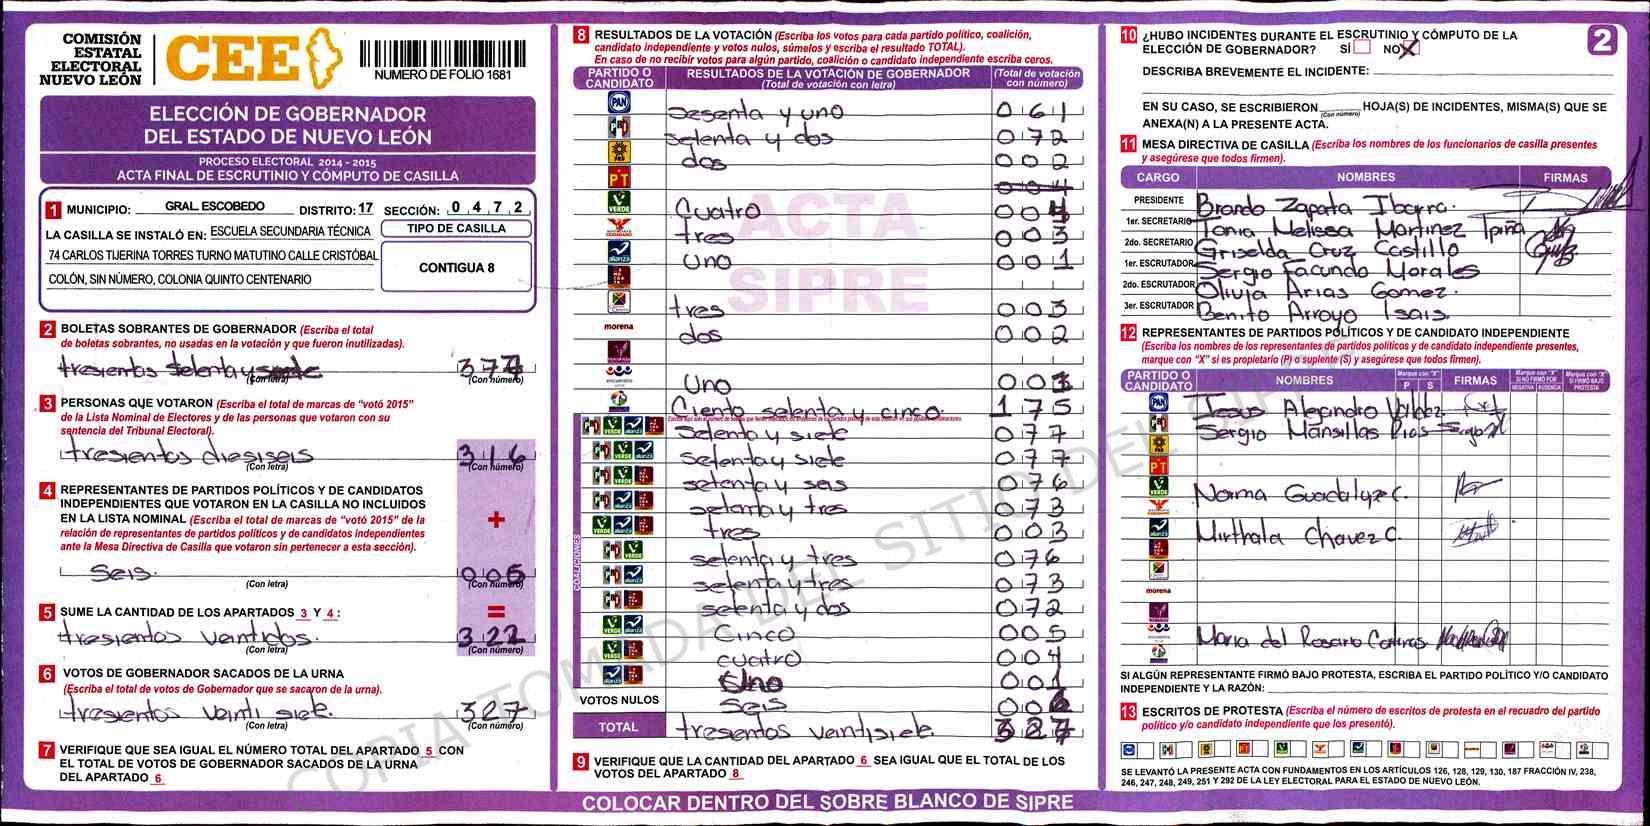 COMISIÓN
ESTATAL
ELECTORAL
NUEVO LEÓN
CEE
NUMERO DE FOLIO 1681
ELECCIÓN DE GOBERNADOR
DEL ESTADO DE NUEVO LEÓN
PROCESO ELECTORAL 2014 - 2015
ACTA FINAL DE ESCRUTINIO Y CÓMPUTO DE CASILLA
1 MUNICIPIO: GRAL. ESCOBEDO DISTRITO: 17 SECCIÓN: 0 4 7 2
LA CASILLA SE INSTALÓ EN: ESCUELA SECUNDARIA TÉCNICA
74 CARLOS TIJERINA TORRES TURNO MATUTINO CALLE CRISTÓBAL
COLÓN, SIN NÚMERO, COLONIA QUINTO CENTENARIO
TIPO DE CASILLA
CONTIGUA 8
2 BOLETAS SOBRANTES DE GOBERNADOR (Escriba el total
de boletas sobrantes, no usadas en la votación y que fueron inutilizadas).
tresientos setenta y
(Con letra) (Con número)
3 PERSONAS QUE VOTARON (Escriba el total de marcas de "votó 2015"
de la Lista Nominal de Electores y de las personas que votaron con su
sentencia del Tribunal Electoral).
tresientos diesiseis 316
(Con letra) (Con número)
4 REPRESENTANTES DE PARTIDOS POLÍTICOS Y DE CANDIDATOS
INDEPENDIENTES QUE VOTARON EN LA CASILLA NO INCLUIDOS
EN LA LISTA NOMINAL (Escriba el total de marcas de "votó 2015" de la
relación de representantes de partidos políticos y de candidatos independientes
ante la Mesa Directiva de Casilla que votaron sin pertenecer a esta sección).
+
Seis. 006
(Con letra) (Con número)
5 SUME LA CANTIDAD DE LOS APARTADOS 3 Y 4 : =
tresientos veintidos. 322
(Con letra) (Con número)
6 VOTOS DE GOBERNADOR SACADOS DE LA URNA
(Escriba el total de votos de Gobernador que se sacaron de la urna).
tresientos veinti siete. 327
(Con letra) (Con número)
7 VERIFIQUE QUE SEA IGUAL EL NÚMERO TOTAL DEL APARTADO 5 CON
EL TOTAL DE VOTOS DE GOBERNADOR SACADOS DE LA URNA
DEL APARTADO 6
8 RESULTADOS DE LA VOTACIÓN (Escriba los votos para cada partido político, coalición,
candidato independiente y votos nulos, súmelos y escriba el resultado TOTAL).
En caso de no recibir votos para algún partido, coalición o candidato independiente escriba ceros.
PARTIDO O CANDIDATO
RESULTADOS DE LA VOTACIÓN DE GOBERNADOR
(Total de votación con letra)
(Total de votación con número)
PAN sesenta y uno 061
PRD setenta y dos 072
PRD dos 002
PT 004
VERDE Cuatro 004
tres 003
alianza uno 001
tres 003
morena dos 002
uno 001
Ciento setenta y cinco. 175
setenta y siete 077
setenta y siete 077
setenta y seis 076
setenta y tres 073
tres 003
setenta y tres 076
setenta y tres 073
setenta y dos 072
Cinco 005
cuatro 004
Uno 001
VOTOS NULOS Seis 006
TOTAL tresientos veintisiete. 327
COALICIONES
ACTA
SIPRE
9 VERIFIQUE QUE LA CANTIDAD DEL APARTADO 6 SEA IGUAL QUE EL TOTAL DE LOS
VOTOS DEL APARTADO 8
COLOCAR DENTRO DEL SOBRE BLANCO DE SIPRE
10 ¿HUBO INCIDENTES DURANTE EL ESCRUTINIO Y CÓMPUTO DE LA
ELECCIÓN DE GOBERNADOR? SÍ NO X
2
DESCRIBA BREVEMENTE EL INCIDENTE:
EN SU CASO, SE ESCRIBIERON HOJA(S) DE INCIDENTES, MISMA(S) QUE SE
(Con número)
ANEXA(N) A LA PRESENTE ACTA.
11 MESA DIRECTIVA DE CASILLA (Escriba los nombres de los funcionarios de casilla presentes
y asegúrese que todos firmen).
CARGO NOMBRES FIRMAS
PRESIDENTE Brando Zapata Ibarra.
1er. SECRETARIO Tania Melissa Martinez Tpiña
2do. SECRETARIO Griselda Cruz Castillo
1er. ESCRUTADOR Sergio Facundo Morales
2do. ESCRUTADOR Olivia Arias Gomez.
3er. ESCRUTADOR Benito Arroyo Isais.
12 REPRESENTANTES DE PARTIDOS POLÍTICOS Y DE CANDIDATO INDEPENDIENTE
(Escriba los nombres de los representantes de partidos políticos y de candidato independiente presentes,
marque con "X" si es propietario (P) o suplente (S) y asegúrese que todos firmen).
PARTIDO O CANDIDATO NOMBRES Marque con "X" P S FIRMAS Marque con "X" SI NO FIRMÓ POR NEGATIVA AUSENCIA Marque con "X" SI FIRMÓ BAJO PROTESTA
PAN Jesus Alejandro Valdez
Sergio Mansillas Rios
PT
VERDE Norma Guadalupe C.
Mirthala Chavez C.
morena
Maria del Rosario Contreras
SI ALGÚN REPRESENTANTE FIRMÓ BAJO PROTESTA, ESCRIBA EL PARTIDO POLÍTICO Y/O CANDIDATO
INDEPENDIENTE Y LA RAZÓN:
13 ESCRITOS DE PROTESTA (Escriba el número de escritos de protesta en el recuadro del partido
político y/o candidato independiente que los presentó).
SE LEVANTÓ LA PRESENTE ACTA CON FUNDAMENTOS EN LOS ARTÍCULOS 126, 128, 129, 130, 187 FRACCIÓN IV, 238,
246, 247, 248, 249, 251 Y 292 DE LA LEY ELECTORAL PARA EL ESTADO DE NUEVO LEÓN.
COPIA TOMADA DEL SITIO DEL SIPRE